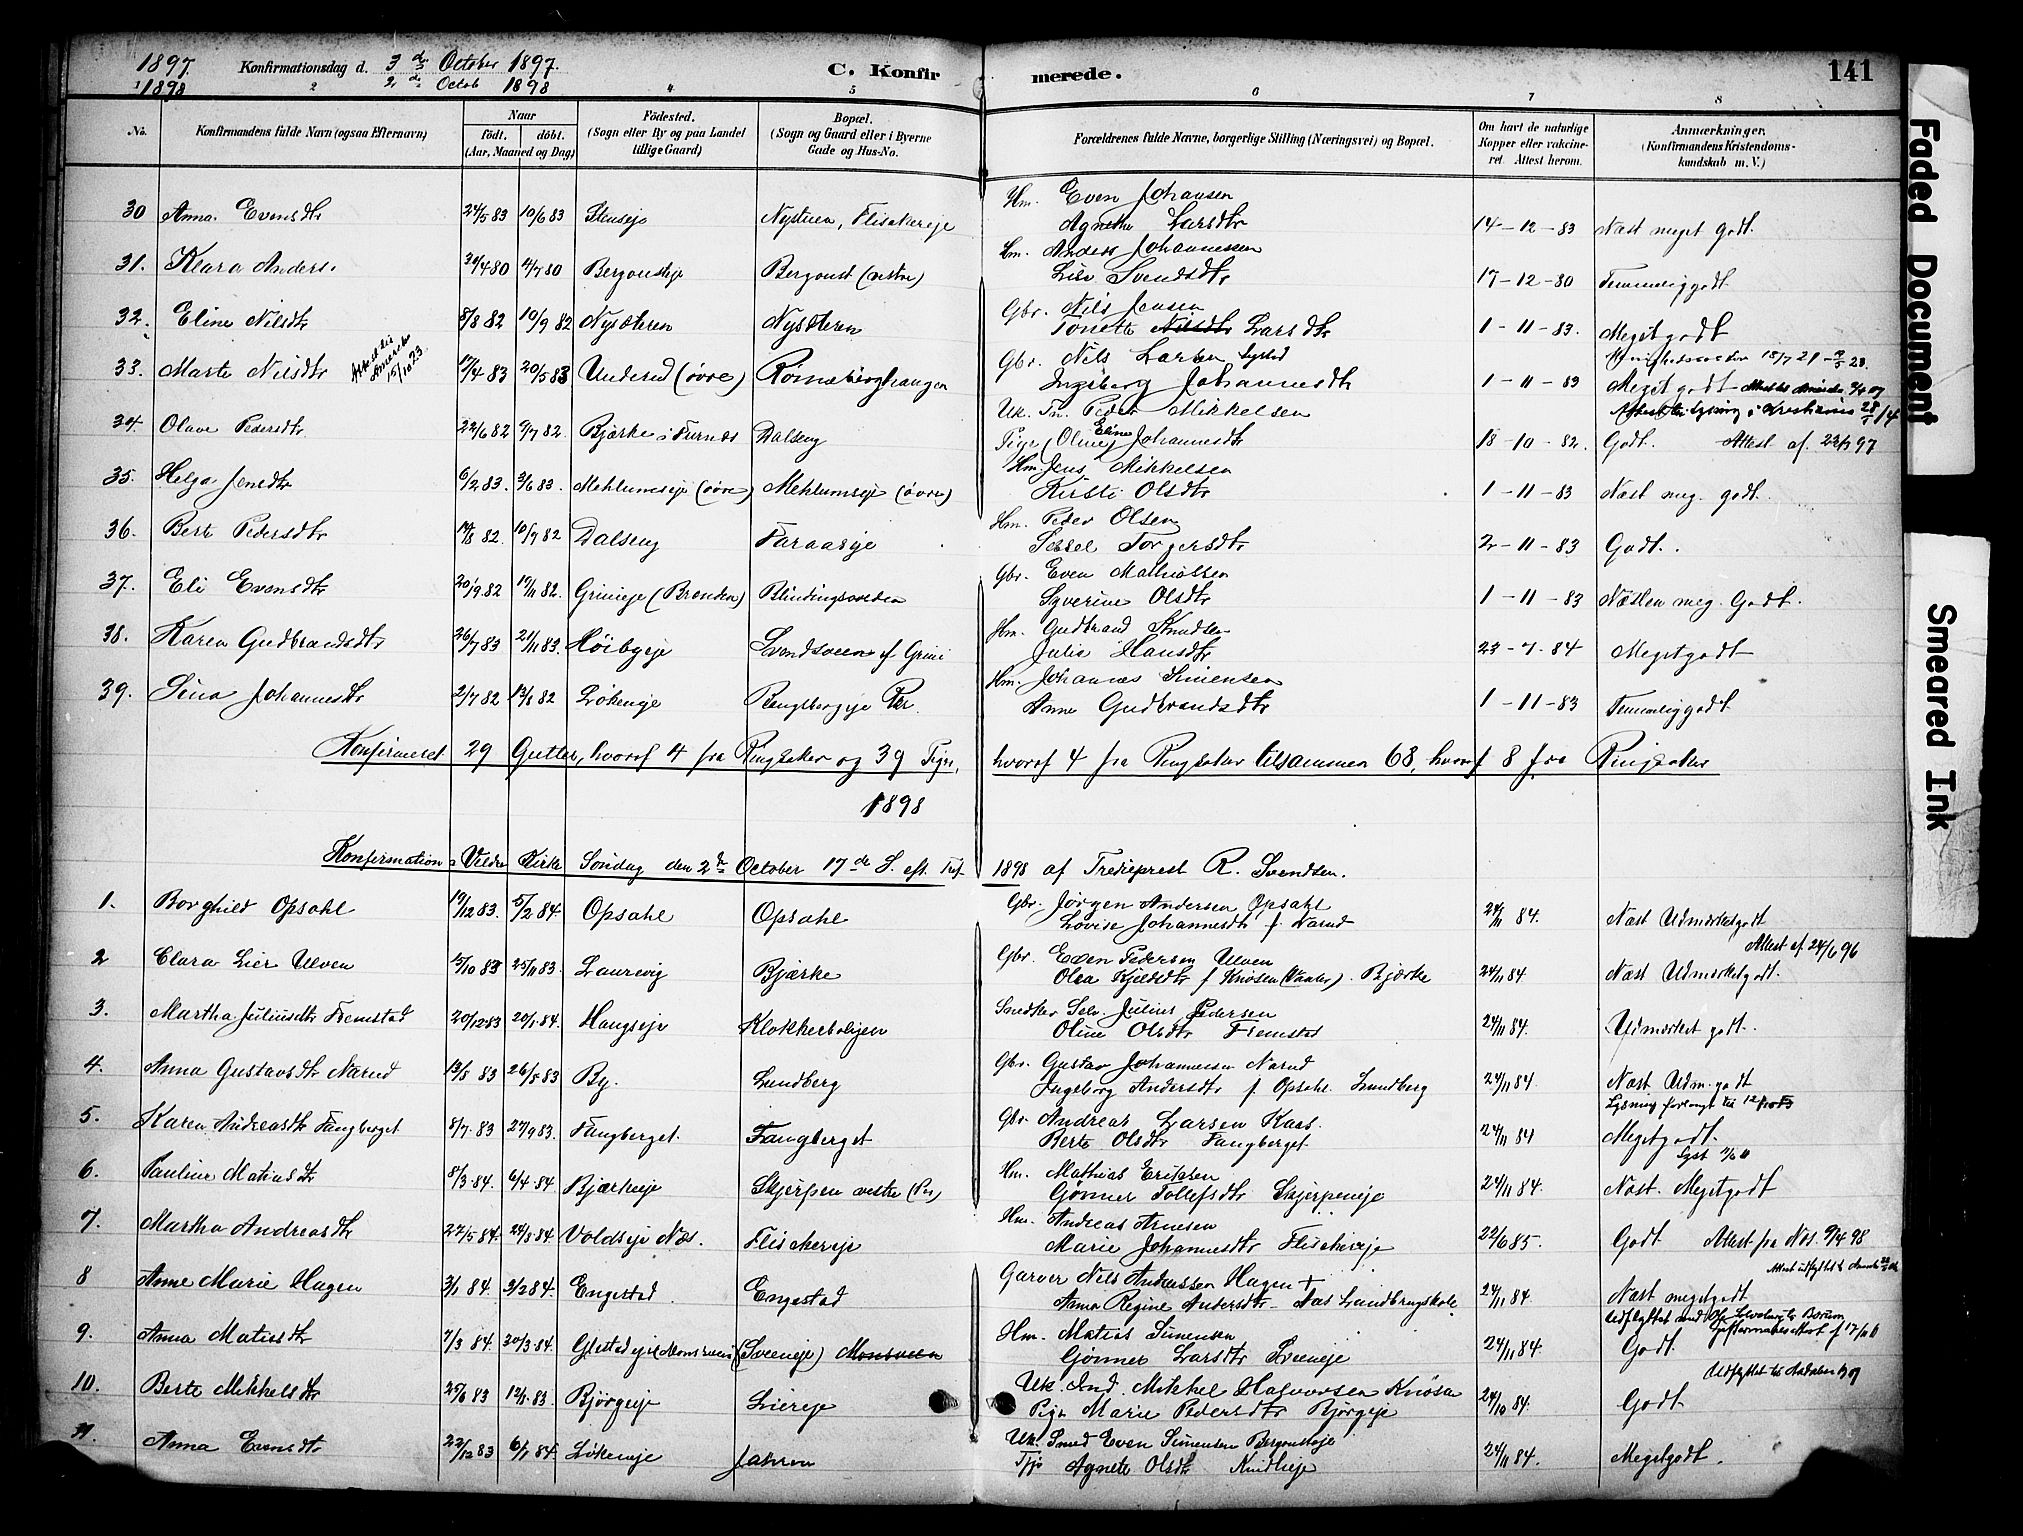 1897. Konfirmationsdag d. 3de October 1897. C. Konfirmerede. 141
1898 2de Octob 1898
1 2 4 5 6 7 8
No. Konfirmandens fulde Navn (ogsaa Efternavn) Naar födt. döbt. (Aar, Maaned og Dag) Födested. (Sogn eller By og paa Landet tillige Gaard) Bopæl. (Sogn og Gaard eller i Byerne Gade og Hus-No. Forældrenes fulde Navne, borgerlige Stilling (Næringsvei) og Bopæl. Om havt de naturlige Kopper eller vakcineret. Attest herom. Anmærkninger. (Konfirmandens Kristendomskundskab m. V.)
Faded Document
Smeared Ink
30 Anna Evensdtr 24/5 83 10/6 83 Stenseje Nystuen, Flisakereje Hm. Even Johansen
Agnethe Larsdtr 14-12-83 Næst meget godt.
31. Klara Anders. /4 80 /7 80 Bergouseje Bergoust (vestre) Hm. Anders Johannessen
Lisv Svendsdtr 17-12-80 Temmelig godt
32. Eline Nilsdtr 8/8 82 10/9 82 Nysæteren Nysæteren Gbr. Nils Jensen
Tonette Nilsdtr Larsdtr 1-11-83. Meget godt
33. Marte Nilsdtr 17/4 83 20/5 83 Underud (övre) Rømaasberghaugen Gbr. Nils Larsen
Ingeborg Johannesdtr 1-11-83 Meget godt
34. Olave Pedersdtr 22/6 82 /7 82. Bjærke i Furnæs Dalseng Uk. Tn. Peder Mikkelsen
Pige (Oline) Eline Johannesdtr 18-10-82. Godt. Attest af 23/ 97
35. Helga Jensdtr 6/2 83. 3/6 83. Mehlumseje (övre) Mehlumseje (övre) Hm. Jens Mikkelsen
Kirsti Olsdtr 1-11-83 Næst meg. godt.
36. Berte Pedersdtr /8 82 10/9 82 Dalseng Faraaseje Hm. Peder Olsen
Sessel Torgersdtr 2-11-83 Godt.
37. Eli Evensdtr 20/9 82 19/11 82. Grinieje (Brænden) Blindingsvolden Gbr. Even Mathiassen
Syverine Olsdtr 1-11-83 Næsten meg. Godt.
38. Karen Gudbrandsdtr 26/7 83 21/11 83. Höibyeje Svendsveen af Grini Hm. Gudbrand Knudsen
Julia Hansdtr 23-7-84 Meget godt
39. Sina Johannesdtr 2/7 82 13/8 82 Lökeneje Rengsbergeje Hm. Johannes Simensen
Anne Gudbrandsdtr 1-11-83 Temmelig godt
Konfirmeret 29 Gutter, hvoraf 4 fra Ringsaker og 39 Piger, hvoraf 4 fra Ringsaker tilsammen 68, hvoraf 8 fra Ringsaker
1898
Konfirmation i Veldre Kirke Söndag den 2de October 17de S. eft. Tref. 1898 af Tredieprest R. Svendsen.
1. Borghild Opsahl 19/12 83. 5/2 84. Opsahl Opsahl Gbr. Jörgen Andersen Opsahl
Lovise Johannesdtr f. Narud 24/11 84. Næst Udmærketgodt
Attest af 24/6 96
2 Clara Lier Ulven 15/10 83 25/11 83. Laurvig Bjærke Gbr. Even Pedersen Ulven
Olea Kjeldsdtr f. Knösen (Vanter). Bjærke 24/11 84. Næst Udmærketgodt.
3. Martha Juliusdtr Fremstad 20/12 83 20/1 84. Haugseje Klokkerboligen Snedker Selv. Julius Pedersen
Oline Olsdtr Fremstad 24/11 84. Udmærket godt.
4. Anna Gustavsdtr Narud 13/5 83 26/5 83 By. Lundberg Gbr. Gustav Johannessen Narud
Ingeborg Andersdtr f. Opsahl. Lundberg 24/11 84. Næst Udm. godt
5. Karen Andreasdtr Fangberget 8/7 83 27/9 83. Fangberget. Fangberget Gbr. Andreas Larsen Kaas.
Berte Olsdtr Fangberget. 24/11 84 Meget godt.
6. Pauline Matiasdtr 8/3 84. 6/4 84 Bjærkeeje Skjerpen vestre Hm. Mathias Eriksen
Gönner Tollefsdtr Skjerpeneje 24/11 84. Næst. Meget godt
7. Martha Andreasdtr 22/5 84. 24/8 84. Voldseje Næs. Flisakereje Hm. Andreas Arnesen
Marie Johannesdtr Flisakereje 22/6 85. Godt Attest fra Næs. 9/4 98
8 Anne Marie Hagen 3/1 84. 3/2 84. Engestad Engestad Garver Nils Andreassen Hagen +
Anna Regine Andersdtr - Aas Landbrugskole 24/11 84. Næst meget godt
9. Anna Matisdtr 7/3 84. 30/3 84. Glestadeje (Sveeneje) Monsveen Hm. Matias Simensen
Gönner Larsdtr Sveeneje 24/11 84. Godt.
10. Berte Mikkelsdtr 25/ 83 12/ 83. Bjørgeeje Liereje Uk. Ind. Mikkel Halvorsen Knösen
Pige Marie Pedersdtr Bjørgeje 24/10 84. Godt
11. Anna Evensdtr 22/12 83 6/1 84. Lökeneje Jahren Uk. Smed Even Simensen Bergouseje
Agnete Olsdtr 24/11 84. Meget godt.